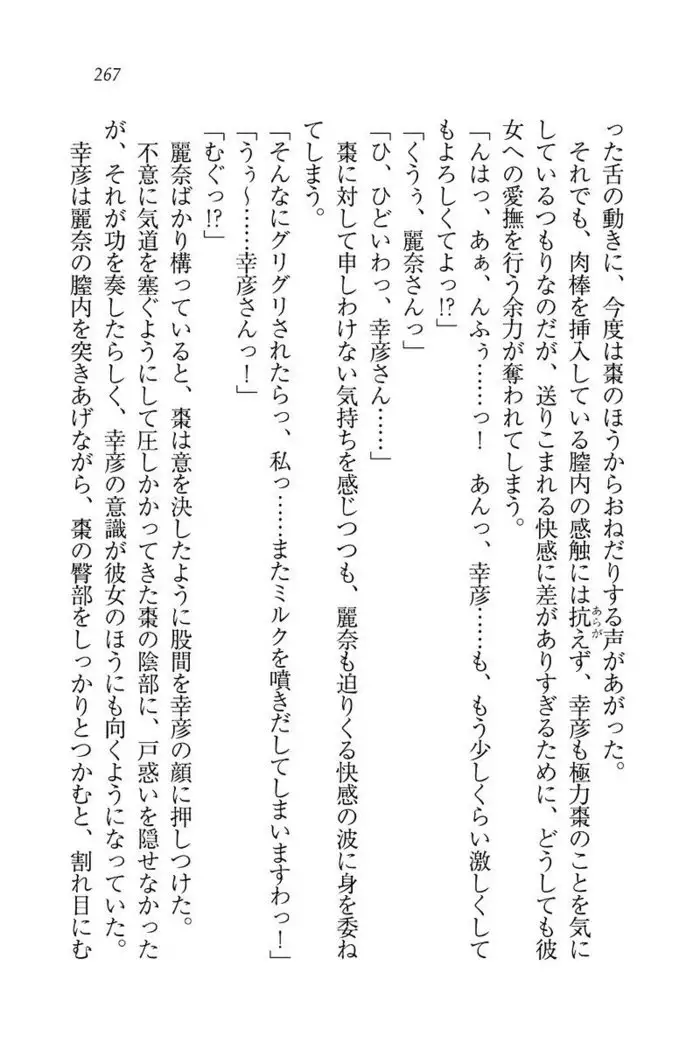 267
った舌の動きに、今度は棗のほうからおねだりする声があがった。
それでも、肉棒を挿入している膣内の感触には抗えず、幸彦も極力棗のことを気に
あらが
しているつもりなのだが、送りこまれる快感に差がありすぎるために、どうしても彼
女への愛撫を行う余力が奪われてしまう。
「んはっ、あぁ、んふぅ……っ！　あんっ、幸彦……も、もう少しくらい激しくして
もよろしくてよっ!?」
「くうぅ、麗奈さんっ」
「ひ、ひどいわっ、幸彦さん……」
棗に対して申しわけない気持ちを感じつつも、麗奈も迫りくる快感の波に身を委ね
てしまう。
「そんなにグリグリされたらっ、私っ……またミルクを噴きだしてしまいますわっ！」
「うぅ～……幸彦さんっ！」
麗奈ばかり構っていると、棗は意を決したように股間を幸彦の顔に押しつけた。
「むぐっ!?」
不意に気道を塞ぐようにして圧しかかってきた棗の陰部に、戸惑いを隠せなかった
が、それが功を奏したらしく、幸彦の意識が彼女のほうにも向くようになっていた。
幸彦は麗奈の膣内を突きあげながら、棗の臀部をしっかりとつかむと、割れ目にむ